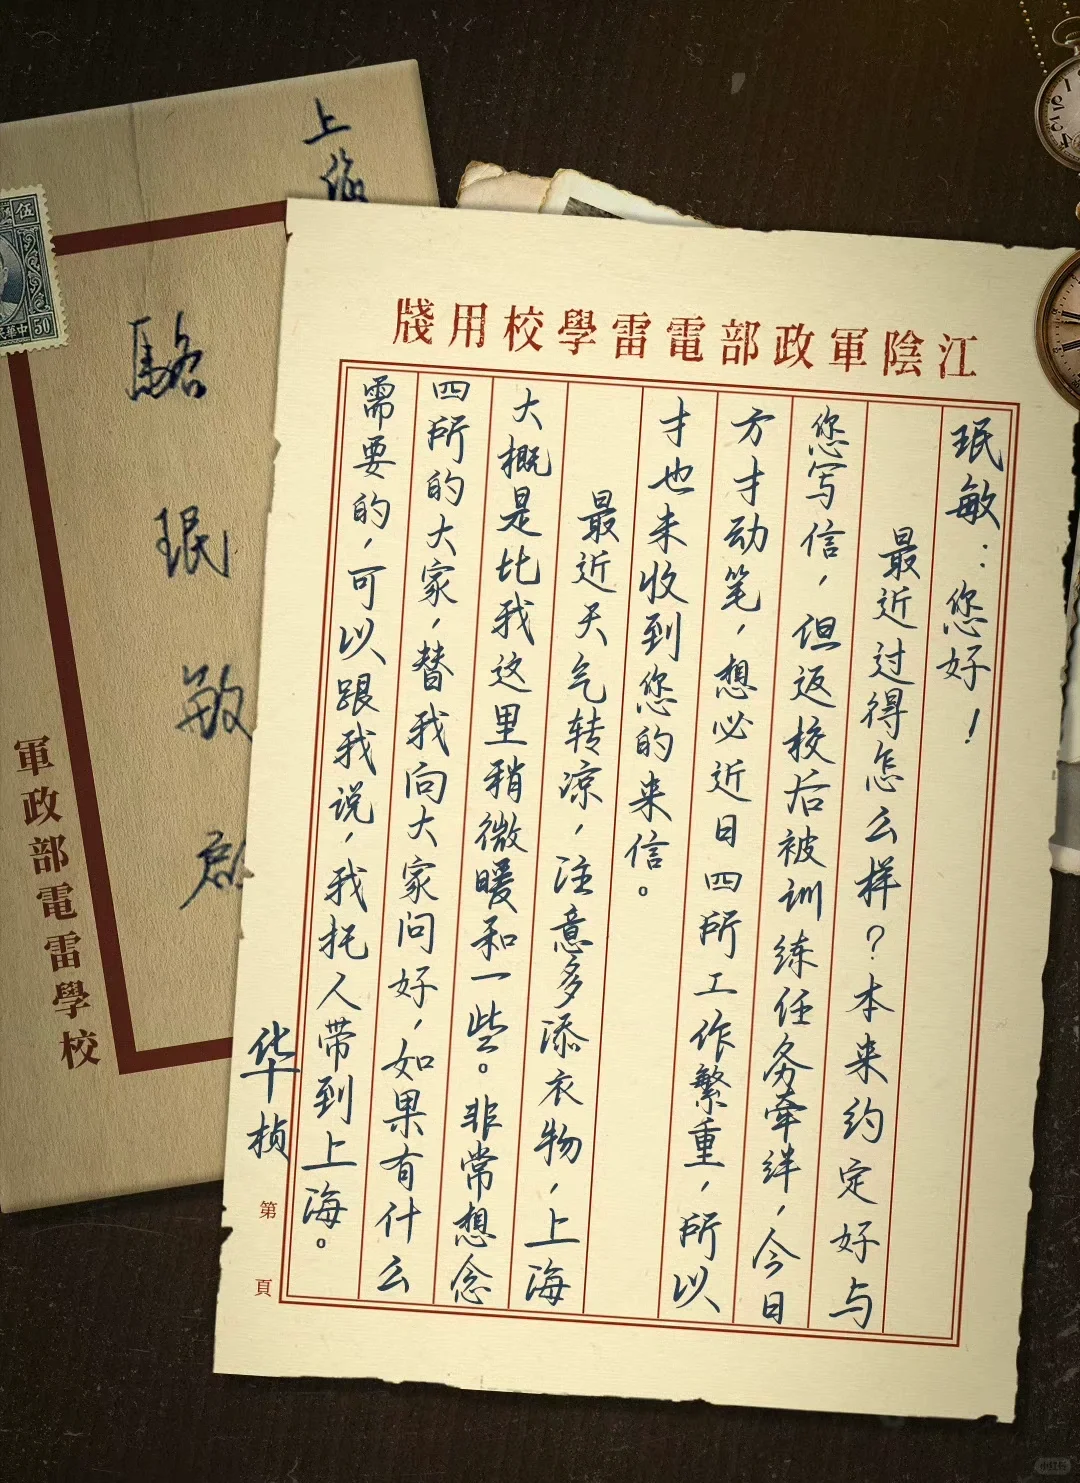 江陰軍政部電雷學校用牋
珉敏：您好！
最近过得怎么样？本来约定好与
您写信，但返校后被训练任务牵绊，今日
方才动笔，想必近日四所工作繁重，所以
才也未收到您的来信。
最近天气转凉，注意多添衣物，上海
大概是比我这里稍微暖和一些。非常想念
四所的大家，替我向大家问好，如果有什么
需要的，可以跟我说，我托人带到上海。
华桢
第 頁
上海
駱珉敏啟
軍政部電雷學校
伍
50
小红书